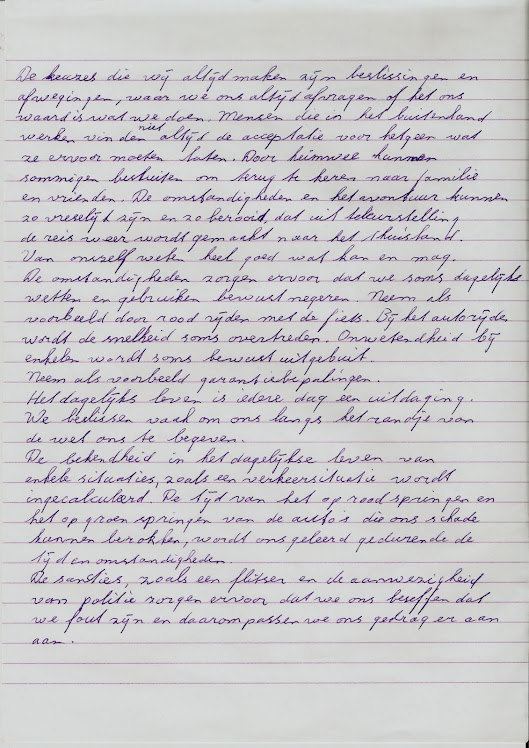 De keuzes die wij altijd maken zijn beslissingen en
afwegingen, waar we ons altijd afvragen of het ons
waard is wat we doen. Mensen die in het buitenland
werken vinden niet altijd de acceptatie voor hetgeen wat
ze ervoor moeten laten. Door heimwee kunnen
sommigen besluiten om terug te keren naar familie
en vrienden. De omstandigheden en het avontuur kunnen
zo vreselijk zijn en zo berooid, dat uit teleurstelling
de reis weer wordt gemaakt naar het thuisland.
Van onszelf weten heel goed wat kan en mag.
De omstandigheden zorgen ervoor dat we soms dagelijks
wetten en gebruiken bewust negeren. Neem als
voorbeeld door rood rijden met de fiets. Bij het autorijden
wordt de snelheid soms overtreden. Onwetendheid bij
enkelen wordt soms bewust uitgebuit.
Neem als voorbeeld garantiebepalingen.
Het dagelijks leven is iedere dag een uitdaging.
We beslissen vaak om ons langs het randje van
de wet ons te begeven.
De bekendheid in het dagelijkse leven van
enkele situaties, zoals een verkeersituatie wordt
ingecalculeerd. De tijd van het op rood springen en
het op groen springen van de auto's die ons schade
kunnen berokken, wordt ons geleerd gedurende de
tijd en omstandigheden.
De santies, zoals een flitser en de aanwezigheid
van politie zorgen ervoor dat we ons beseffen dat
we fout zijn en daarom passen we ons gedrag er aan
aan.